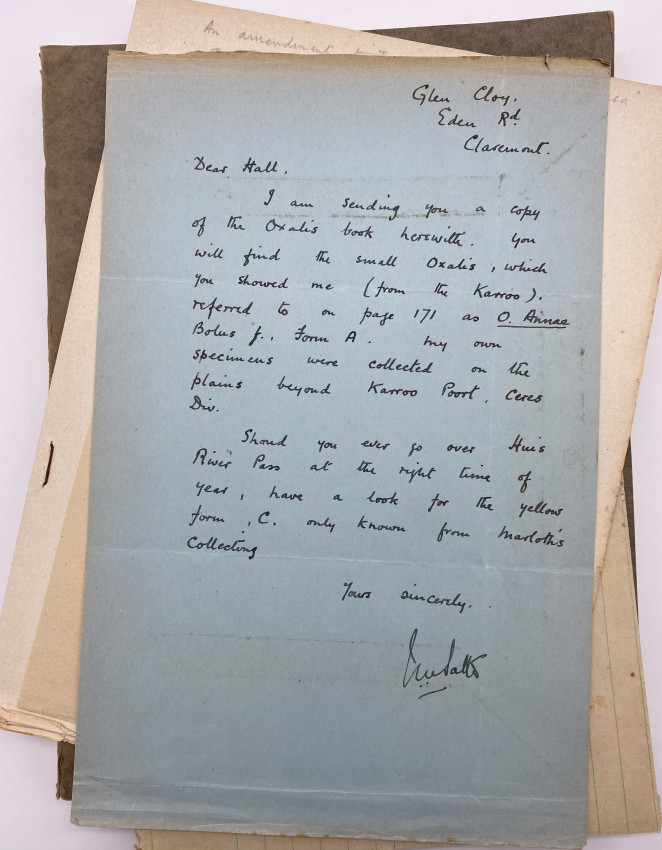 An amendment
Glen Cloy.
Eden Rd.
Claremont.
Dear Hall.
I am sending you a copy
of the Oxalis book herewith. You
will find the small Oxalis, which
you showed me (from the Karroo).
referred to on page 171 as O. Annae
Bolus f., Form A. My own
specimens were collected on the
plains beyond Karroo Poort, Ceres
Div.
Shoud you ever go over Huis
River Pass at the right time of
year, have a look for the yellow
form, C. only known from Marloth's
Collecting
Yours sincerely.